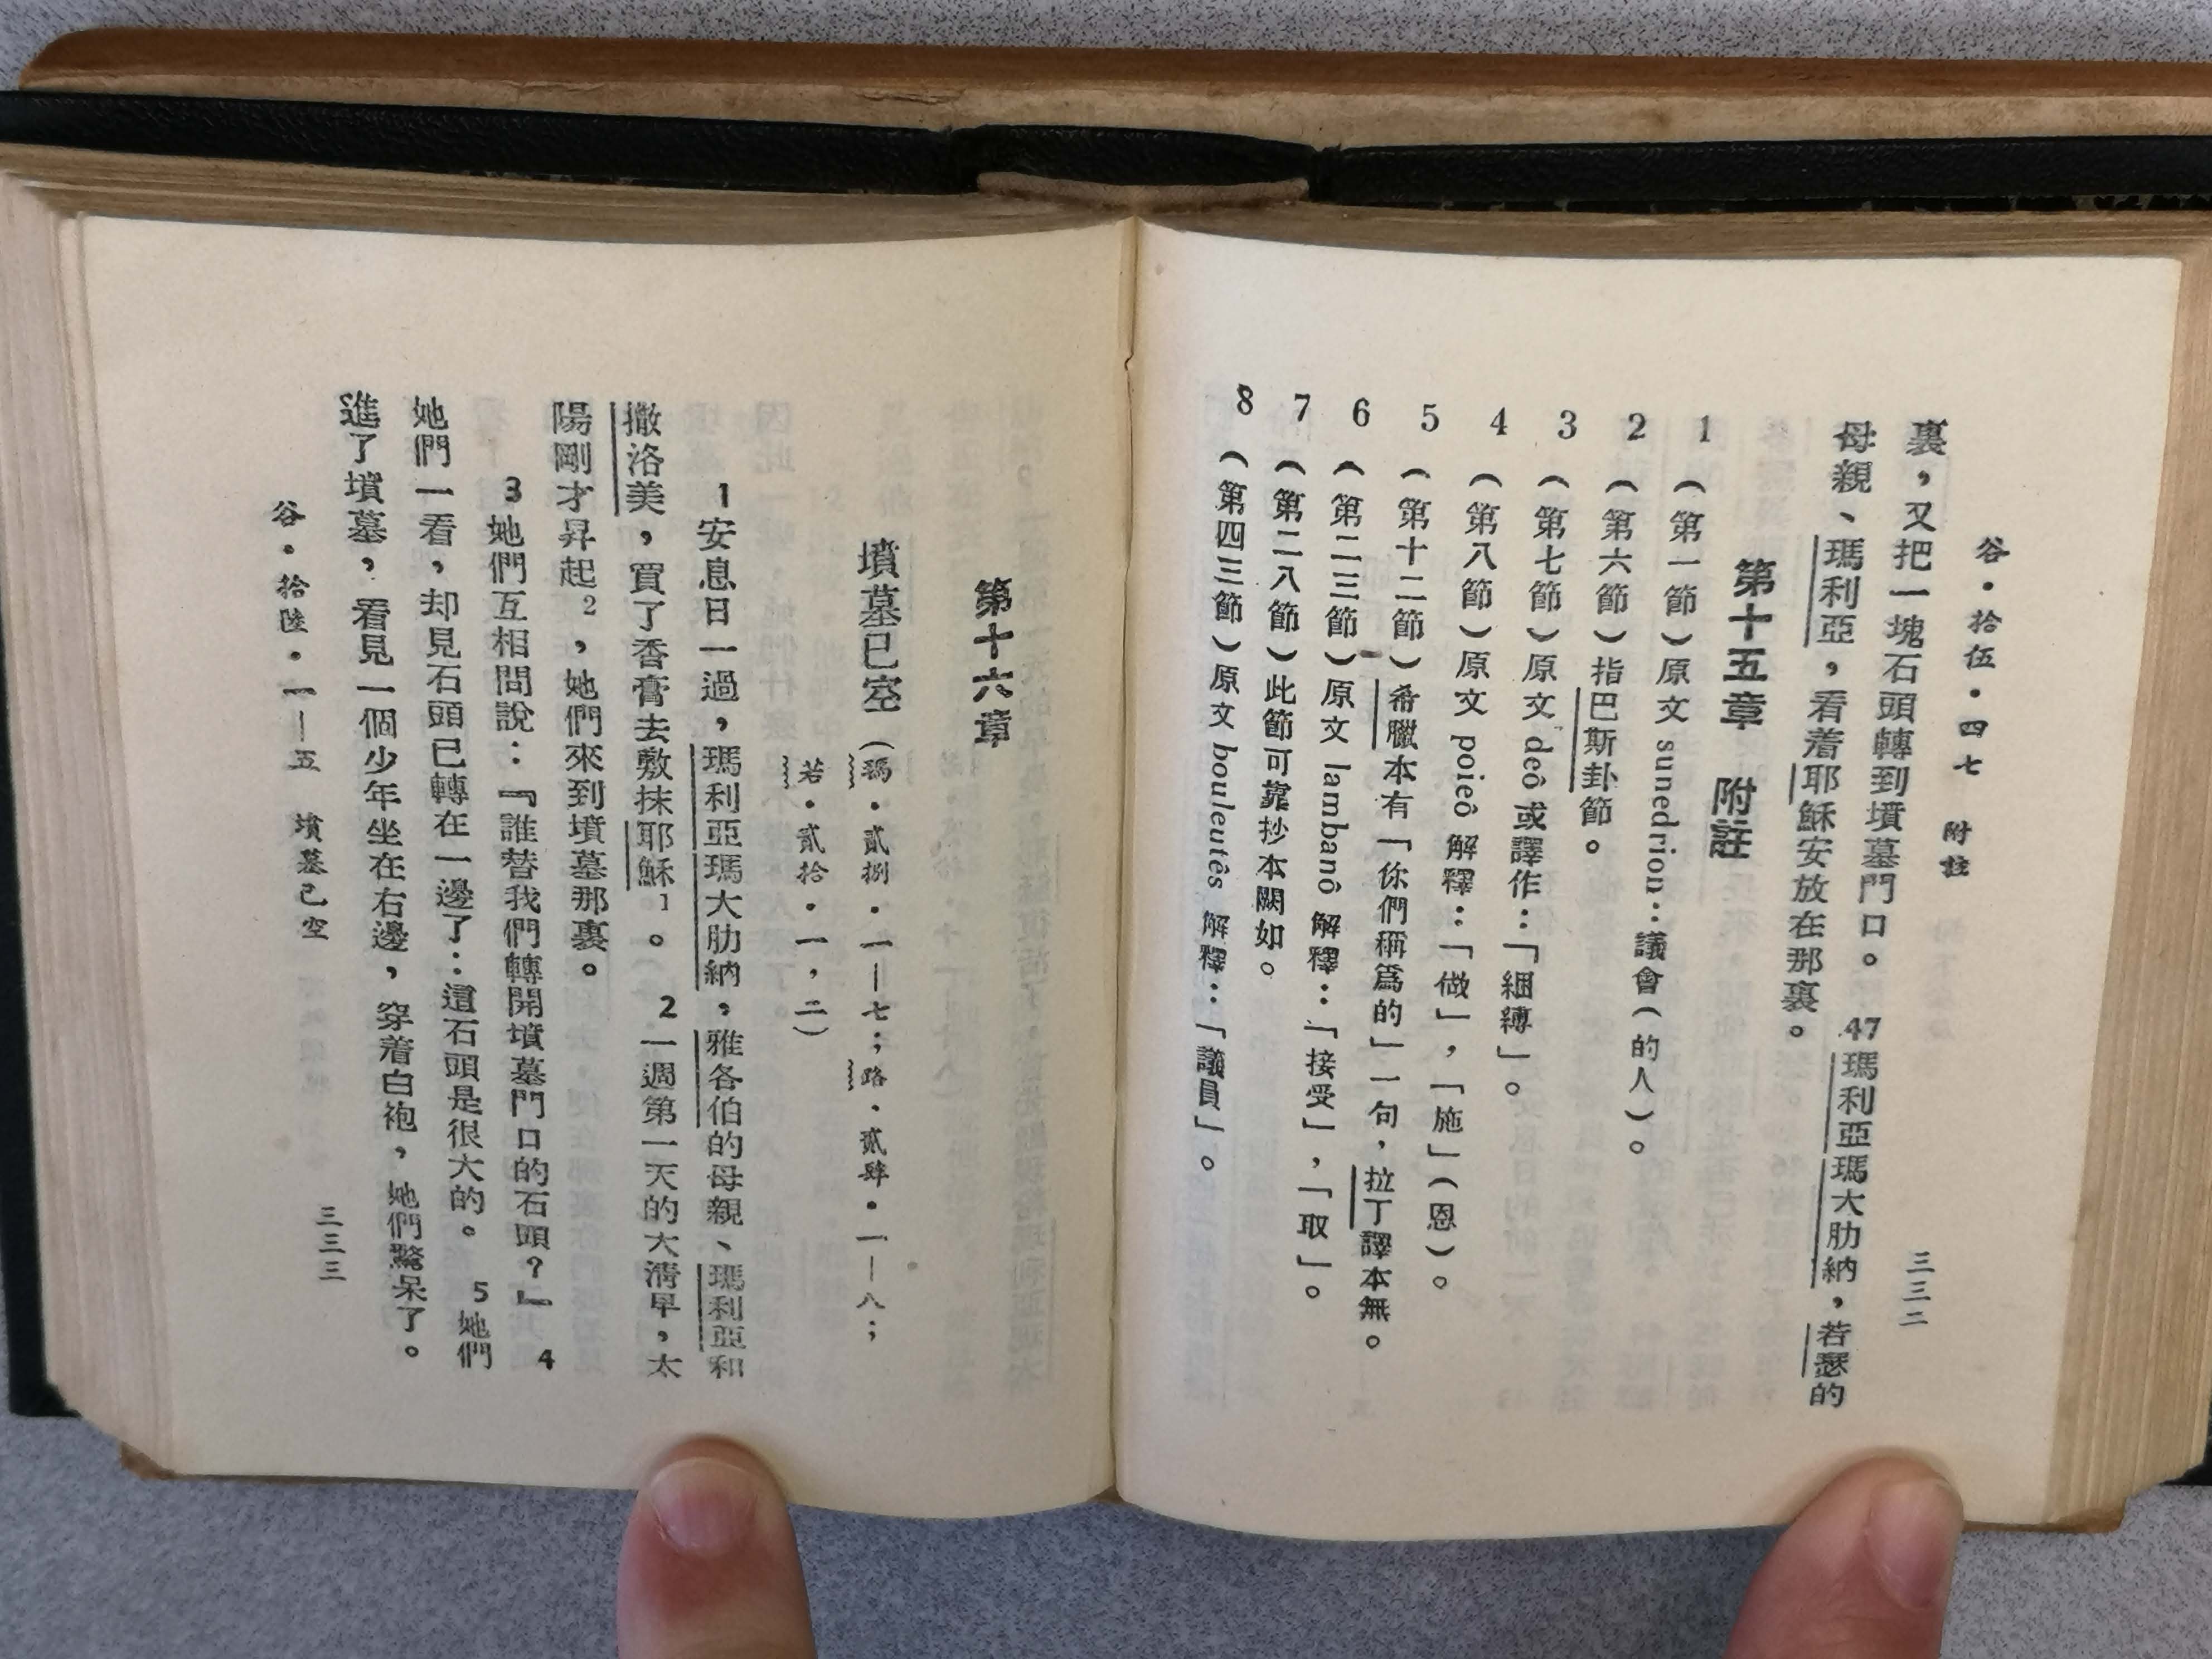 谷•拾伍•四七 附註 三三二
裏，又把一塊石頭轉到墳墓門口。47瑪利亞瑪大肋納，若瑟的
母親、瑪利亞，看着耶穌安放在那裏。
第十五章 附註
1（第一節）原文 sunedrion：議會（的人）。
2（第六節）指巴斯卦節。
3（第七節）原文 deô 或譯作：「綑縛」。
4（第八節）原文 poieô 解釋：「做」，「施」（恩）。
5（第十二節）希臘本有「你們稱爲的」一句，拉丁譯本無。
6（第二三節）原文 lambanô 解釋：「接受」，「取」。
7（第二八節）此節可靠抄本闕如。
8（第四三節）原文 bouleutês 解釋：「議員」。
第十六章
墳墓已空（瑪•貳捌•一—七；路•貳肆•一—八；
若•貳拾•一，二）
1安息日一過，瑪利亞瑪大肋納，雅各伯的母親、瑪利亞和
撒洛美，買了香膏去敷抹耶穌1。2一週第一天的大清早，太
陽剛才昇起2，她們來到墳墓那裏。
3她們互相問說：『誰替我們轉開墳墓門口的石頭？』4
她們一看，却見石頭已轉在一邊了：這石頭是很大的。5她們
進了墳墓，看見一個少年坐在右邊，穿着白袍，她們驚呆了。
谷•拾陸•一—五 墳墓已空 三三三